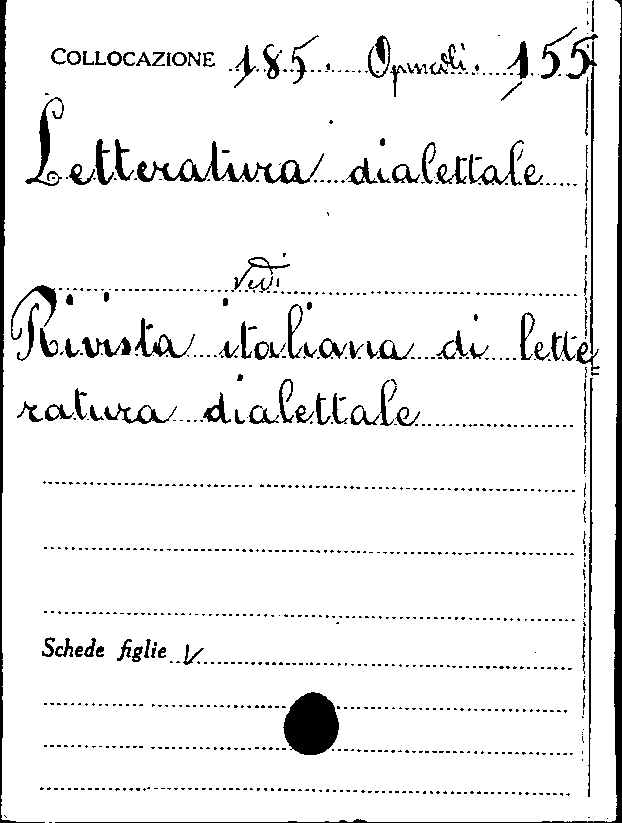 COLLOCAZIONE 185. Opuscoli. 155
Letteratura dialettale
vedi
Rivista italiana di lette=
ratura dialettale
Schede figlie V